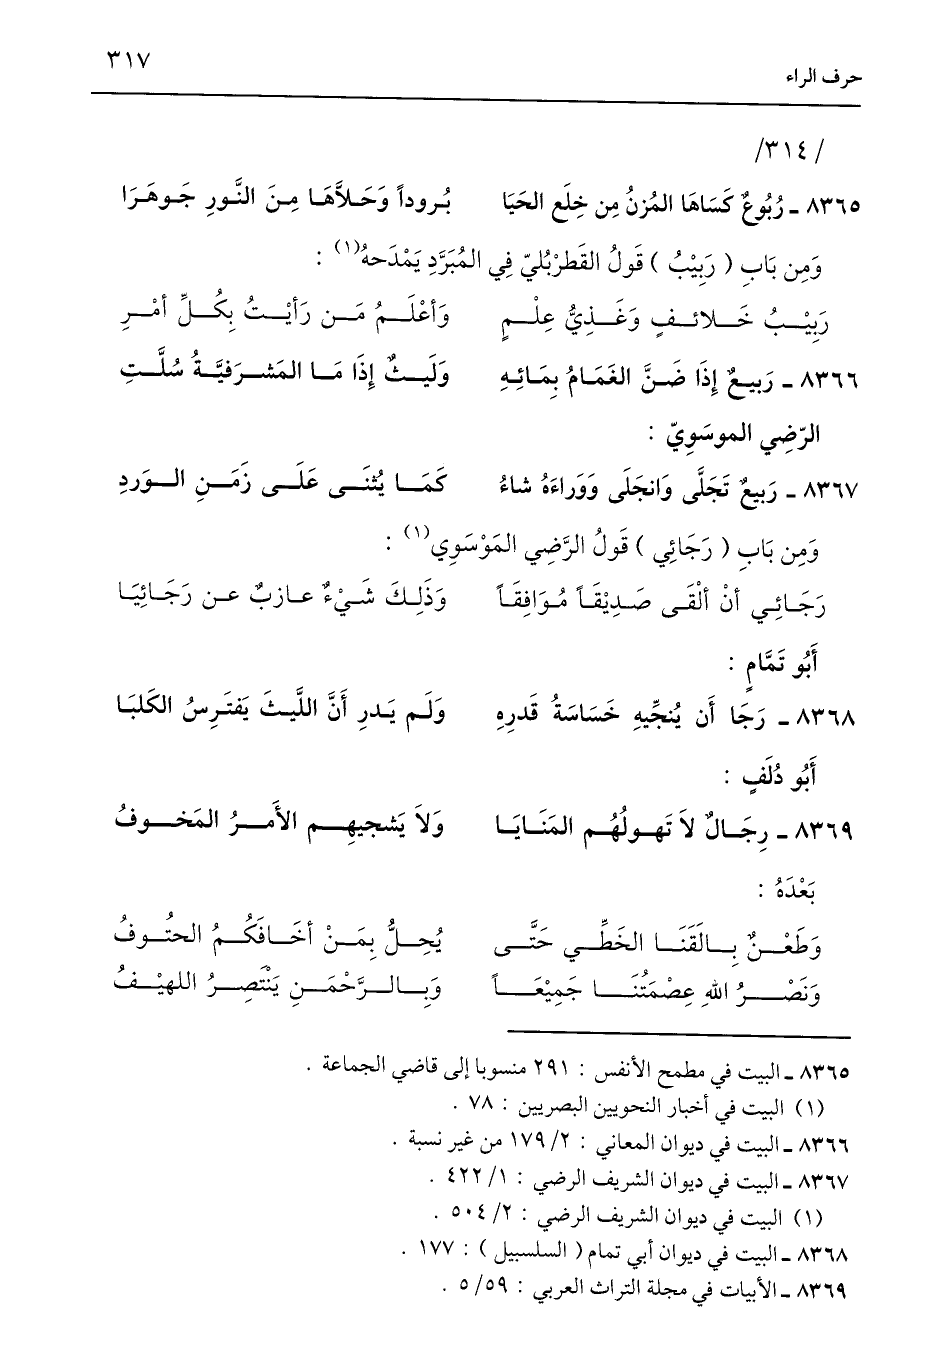 حرف الراء ٣١٧
/٣١٤/
٨٣٦٥ ـ رُبُوعٌ كَسَاهَا المُزنُ مِن خِلَعِ الحَيَا بُروداً وَحَلاَّهَا مِنَ النَّورِ جَوهَرَا
وَمِن بَابِ ( رَبِيْبُ ) قَولُ القَطرْبُليّ فِي المُبَرَّدِ يَمْدَحهُ(١) :
رَبِيْبُ خَلائفٍ وَغَذِيُّ عِلْمٍ وَأعْلَمُ مَن رَأيْتُ بِكُلِّ أمْرِ
٨٣٦٦ ـ رَبِيعٌ إِذَا ضَنَّ الغَمَامُ بِمَائِهِ وَلَيثٌ إِذَا مَا المَشرَفيَّةُ سُلَّتِ
الرّضِي الموسَوِيّ :
٨٣٦٧ ـ رَبيعٌ تَجَلَّى وَانجَلَى وَوَراءَهُ شاءُ كَمَا يُثنَى عَلَى زَمَنِ الوَردِ
وَمِن بَابِ ( رَجَائِي ) قَولُ الرَّضِي المَوْسَوِي(١) :
رَجَائِي أنْ ألْقَى صَدِيْقَاً مُوَافِقَاً وَذَلِكَ شَيْءٌ عازبٌ عن رَجَائِيَا
أَبُو تَمَّامٍ :
٨٣٦٨ ـ رَجَا أَن يُنجِّيهِ خَسَاسَةُ قَدرِهِ وَلَم يَدرِ أَنَّ اللَّيثَ يَفتَرِسُ الكَلبَا
أَبُو دُلَفٍ :
٨٣٦٩ ـ رِجَالٌ لاَ تَهولُهُم المَنَايَا وَلاَ يَشجيهِم الأَمرُ المَخوفُ
بَعْدَهُ :
وَطَعْنٌ بِالَقَنَا الخَطِّي حَتَّى يُحِلُّ بِمَنْ أخَافَكُمُ الحتُوفُ
وَنَصْرُ اللهِ عِصْمَتُنَا جَمِيْعَاً وَبِالرَّحْمَنِ يَنْتَصِرُ اللهِيْفُ
٨٣٦٥ ـ البيت في مطمح الأنفس : ٢٩١ منسوبا إلى قاضي الجماعة .
(١) البيت في أخبار النحويين البصريين : ٧٨ .
٨٣٦٦ ـ البيت في ديوان المعاني : ٢/ ١٧٩ من غير نسبة .
٨٣٦٧ ـ البيت في ديوان الشريف الرضي : ١/ ٤٢٢ .
(١) البيت في ديوان الشريف الرضي : ٢/ ٥٠٤ .
٨٣٦٨ ـ البيت في ديوان أبي تمام ( السلسبيل ) : ١٧٧ .
٨٣٦٩ ـ الأبيات في مجلة التراث العربي : ٥٩/ ٥ .